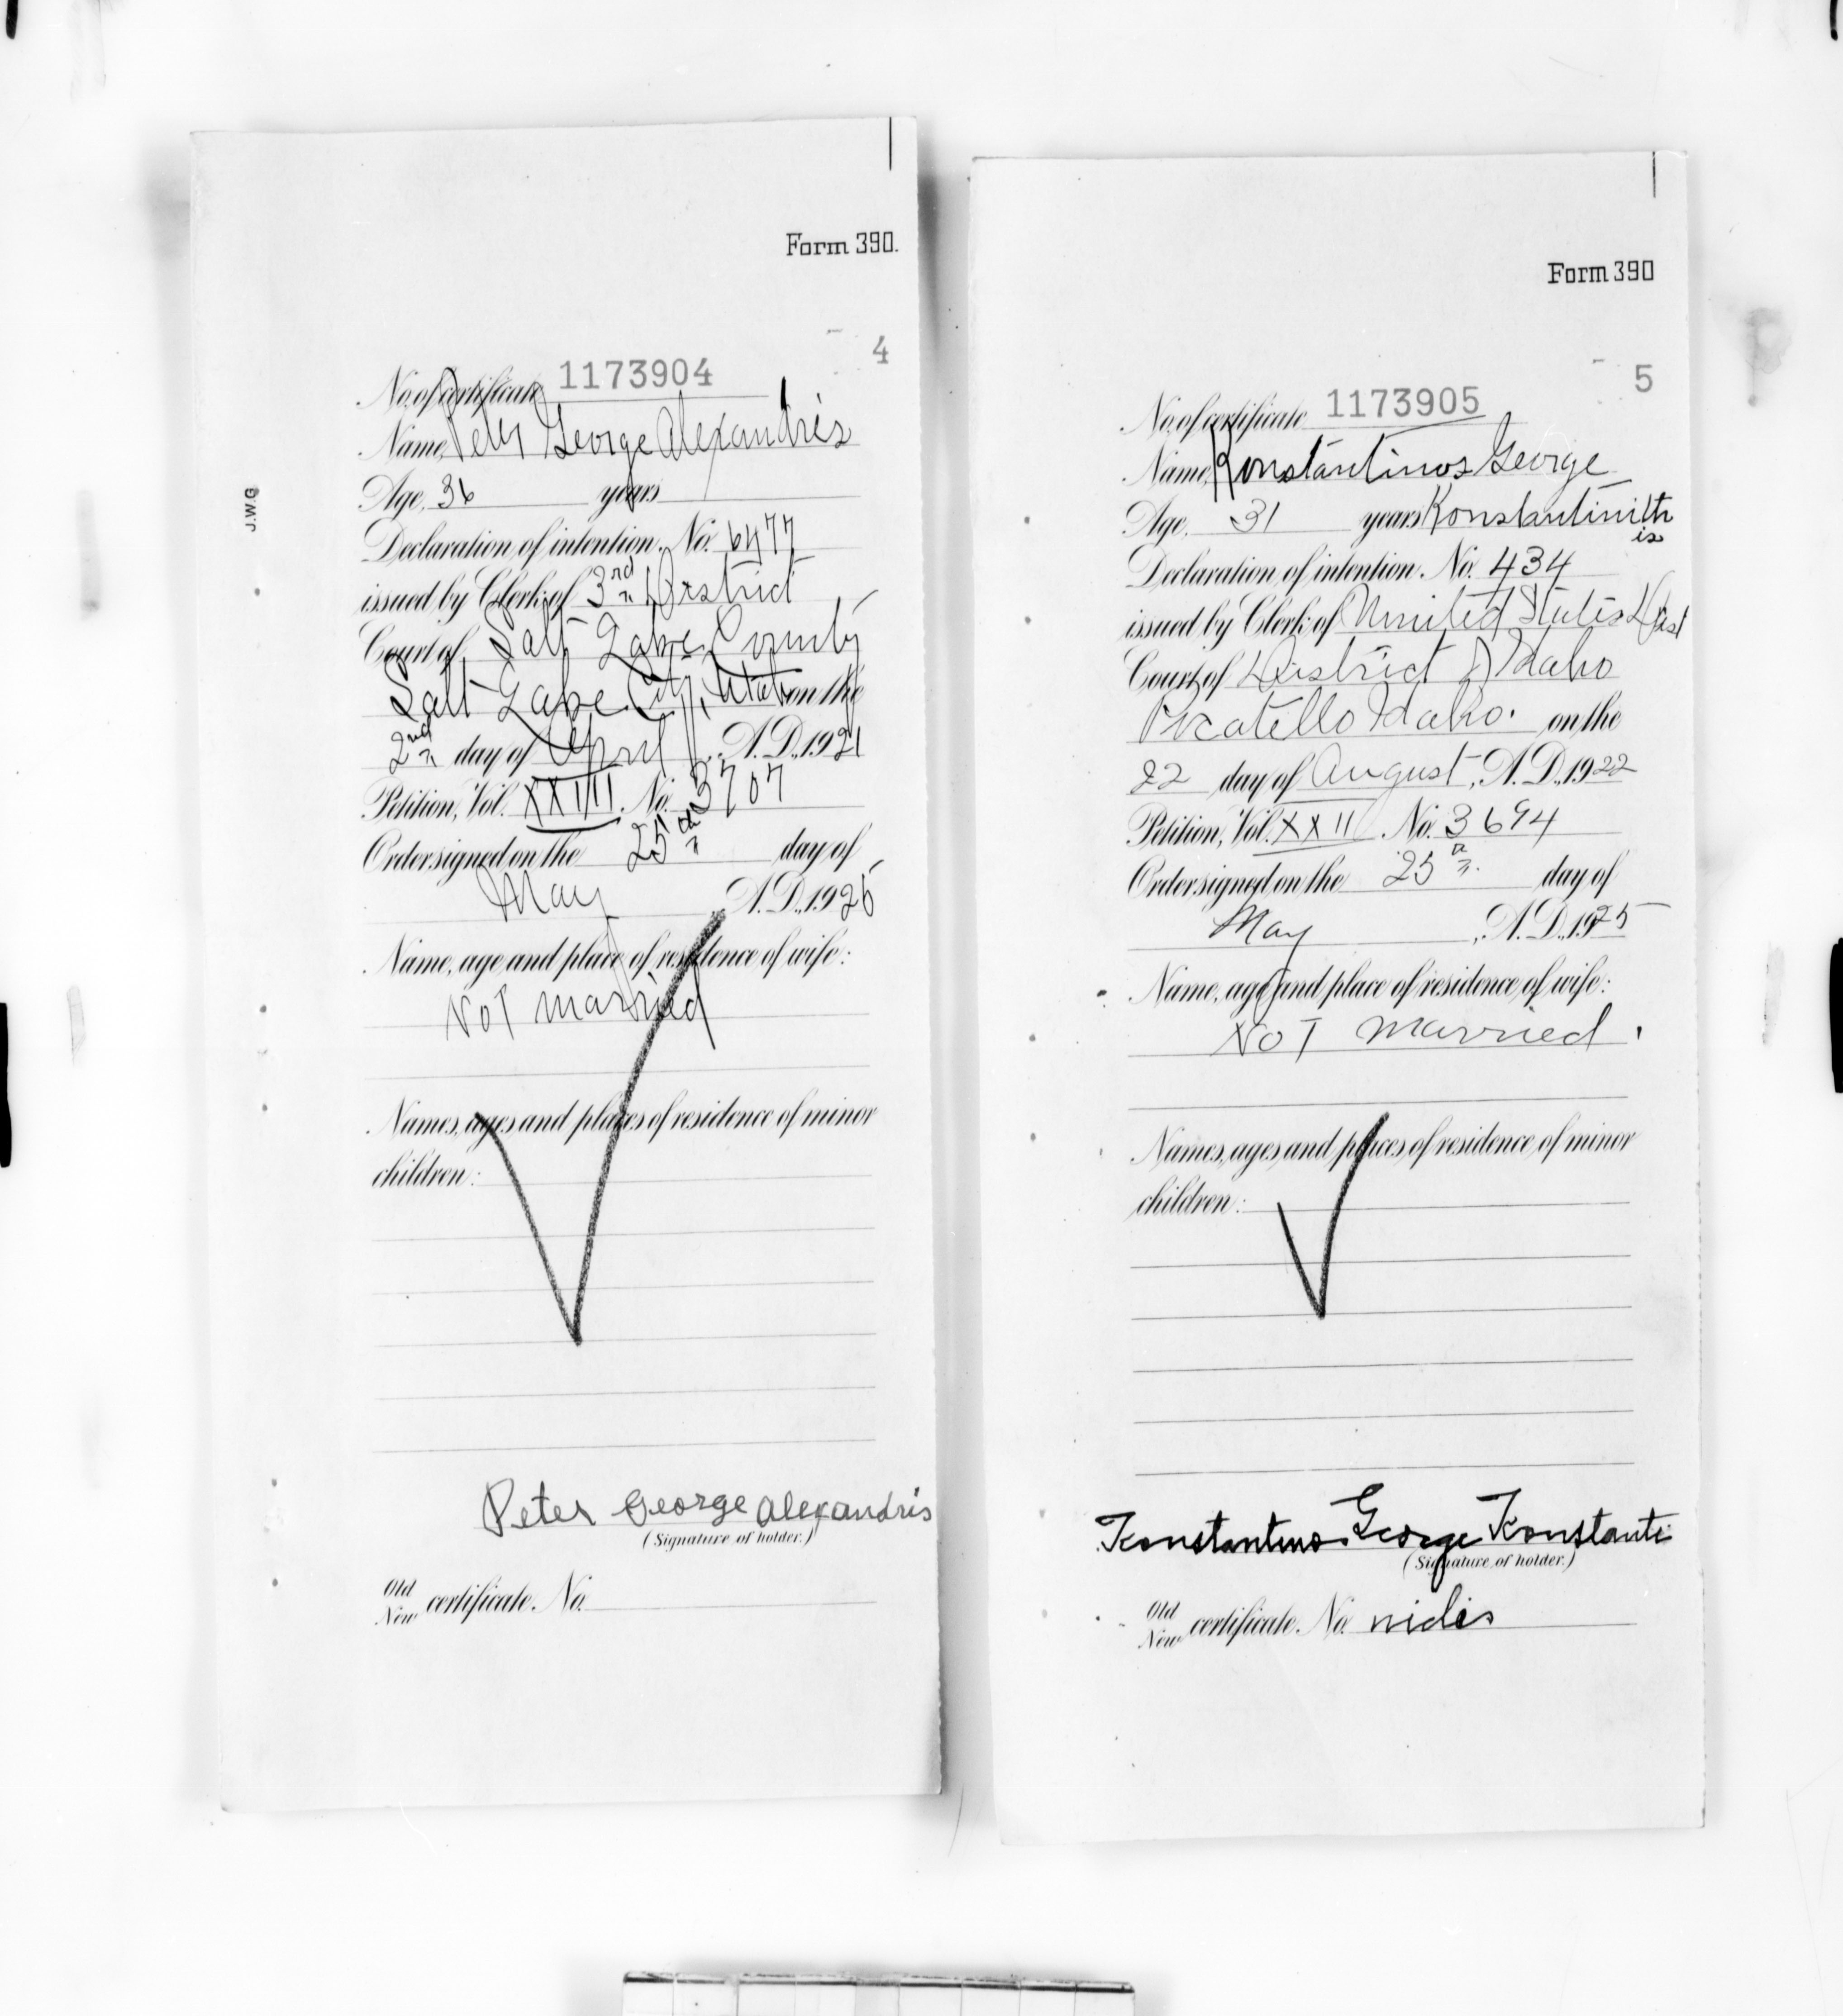 Form 390.
4
No. of certificate 1173904
Name, Peter George Alexandris
Age, 36 years
Declaration of intention. No. 6477
issued by Clerk of 3rd District
Court of Salt Lake County
Salt Lake City, Utah on the
2nd day of April, A. D., 1921
Petition, Vol. XXIIII. No. 3707
Order signed on the 25th day of
May A. D., 1925
Name, age, and place of residence of wife:
Not married
Names, ages, and places of residence of minor
children:
Peter George Alexandris
(Signature of holder.)
Old
New certificate. No.
J.W.G
Form 390
5
No. of certificate 1173905
Name, Konstantinos George
Age, 31 years Konstantinith
is
Declaration of intention. No. 434
issued by Clerk of United States Dist
Court of District of Idaho
Pocatello Idaho. on the
22 day of August, A. D., 1922
Petition, Vol. XXII. No. 3694
Order signed on the 25 day of
May, A. D., 1925
Name, age, and place of residence of wife:
Not married.
Names, ages, and places of residence of minor
children:
Konstantinos George Konstanti
(Signature of holder.)
Old
New certificate. No. nidis